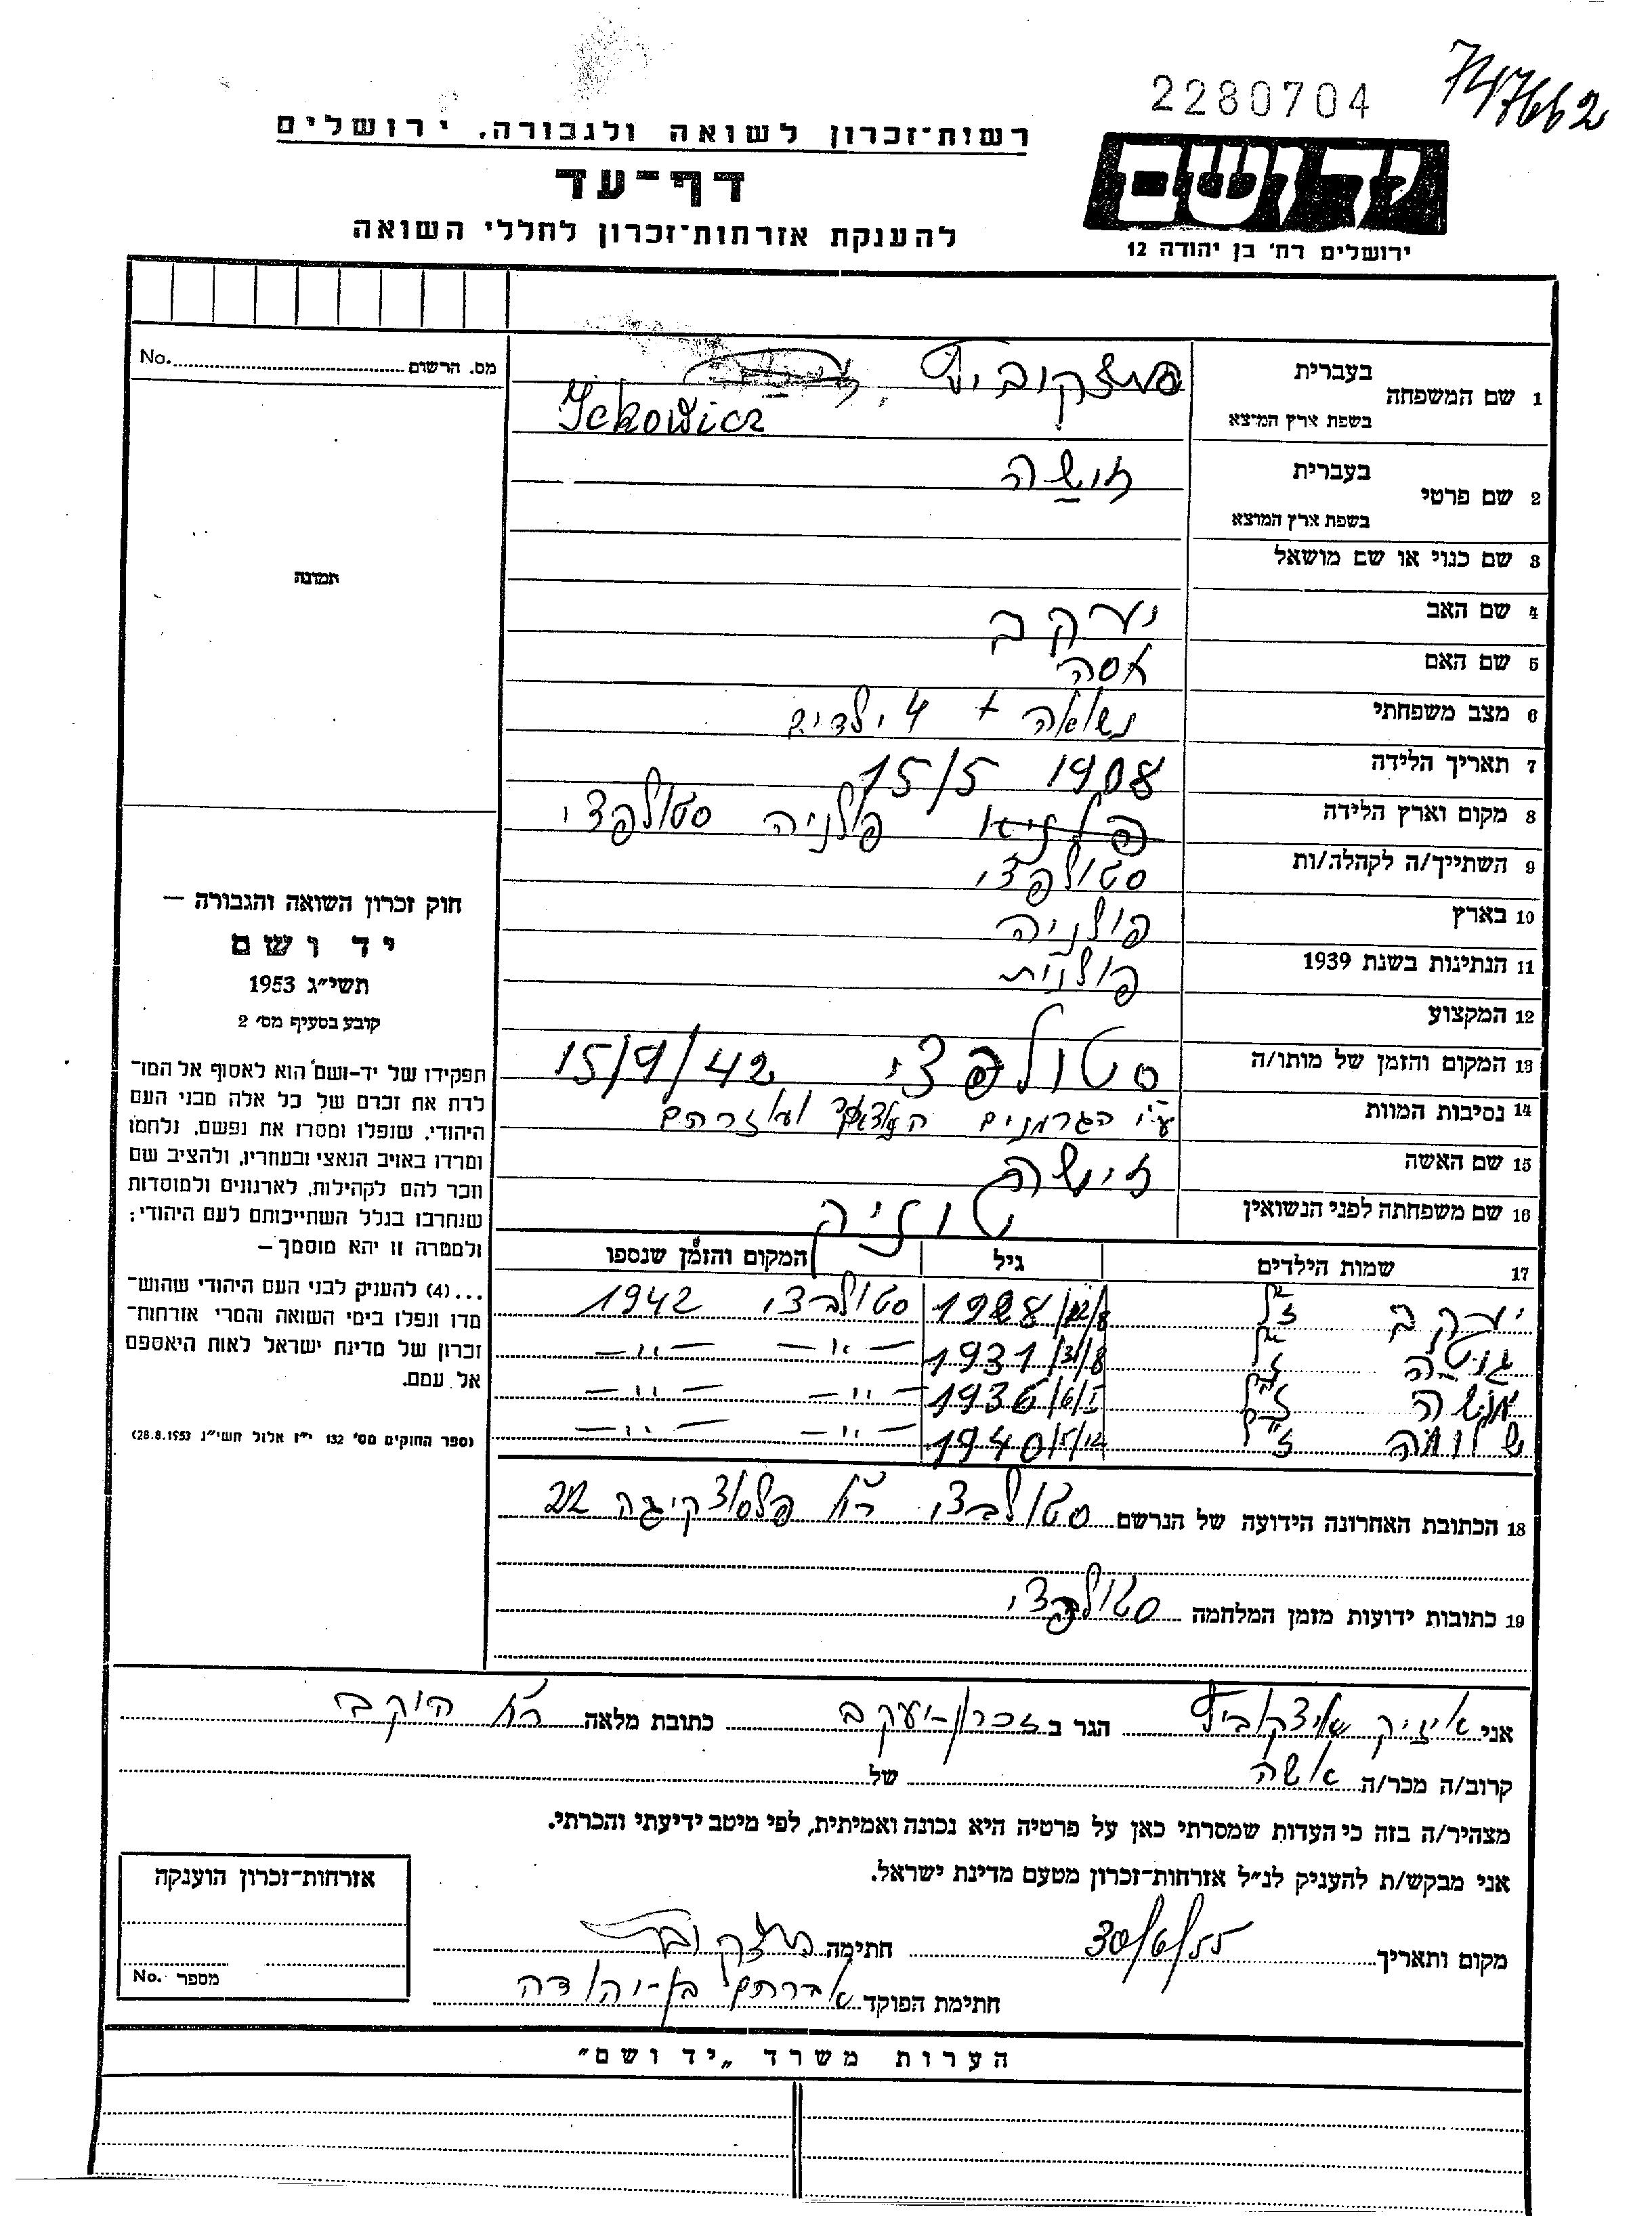 2280704
747662
רשות-זכרון לשואה ולגבורה, ירושלים
דף-עד
להענקת אזרחות-זכרון לחללי השואה
יד ושם
ירושלים רח' בן יהודה 12
מס. הרשום No.
תמונה
1 שם המשפחה
בעברית
בשפת ארץ המוצא Ickowicz
2 שם פרטי
בעברית זושה
בשפת ארץ המוצא
3 שם כנוי או שם מושאל
4 שם האב יעקב
5 שם האם אסה
6 מצב משפחתי נשואה + 4 ילדים
7 תאריך הלידה 1908 15/5
8 מקום וארץ הלידה פולניה סטולפצי
9 השתייך/ה לקהלה/ות סטולפצי
10 בארץ פולניה
11 הנתינות בשנת 1939 פולנית
12 המקצוע
13 המקום והזמן של מותו/ה סטולפצי 15/9/42
14 נסיבות המוות ע"י הגרמנים ועוזרהם
15 שם האשה זישה
16 שם משפחתה לפני הנשואין
17 שמות הילדים גיל המקום והזמן שנספו
יעקב ז"ל 1928/12/8 סטולבצי 1942
גוטה ז"ל 1931/3/8 — " — — " —
משה ז"ל 1936/6/5 — " — — " —
שלומה ז"ל 1940/5/12 — " — — " —
18 הכתובת האחרונה הידועה של הנרשם סטולבצי רח' 22
19 כתובות ידועות מזמן המלחמה סטולפצי
חוק זכרון השואה והגבורה —
יד ושם
תשי"ג 1953
קובע בסעיף מס' 2
תפקידו של יד-ושם הוא לאסוף אל המו-
לדת את זכרם של כל אלה מבני העם
היהודי, שנפלו ומסרו את נפשם, נלחמו
ומרדו באויב הנאצי ובעוזריו, ולהציב שם
וזכר להם לקהילות, לארגונים ולמוסדות
שנחרבו בגלל השתייכותם לעם היהודי;
ולמטרה זו יהא מוסמך —
...(4) להעניק לבני העם היהודי שהוש-
מדו ונפלו בימי השואה והמרי אזרחות-
זכרון של מדינת ישראל לאות היאספם
אל עמם.
(ספר החוקים מס' 132 י"ז אלול תשי"ג 28.8.1953)
אני אייזיק איצקוביץ הגר ב זכרון-יעקב כתובת מלאה רח' היקב
קרוב/ה מכר/ה אשה של
מצהיר/ה בזה כי העדות שמסרתי כאן על פרטיה היא נכונה ואמיתית, לפי מיטב ידיעתי והכרתי.
אני מבקש/ת להעניק לנ"ל אזרחות-זכרון מטעם מדינת ישראל.
מקום ותאריך 30/6/55 חתימה
חתימת הפוקד אברהם בן-יהודה
אזרחות-זכרון הוענקה
מספר No.
הערות משרד "יד ושם"